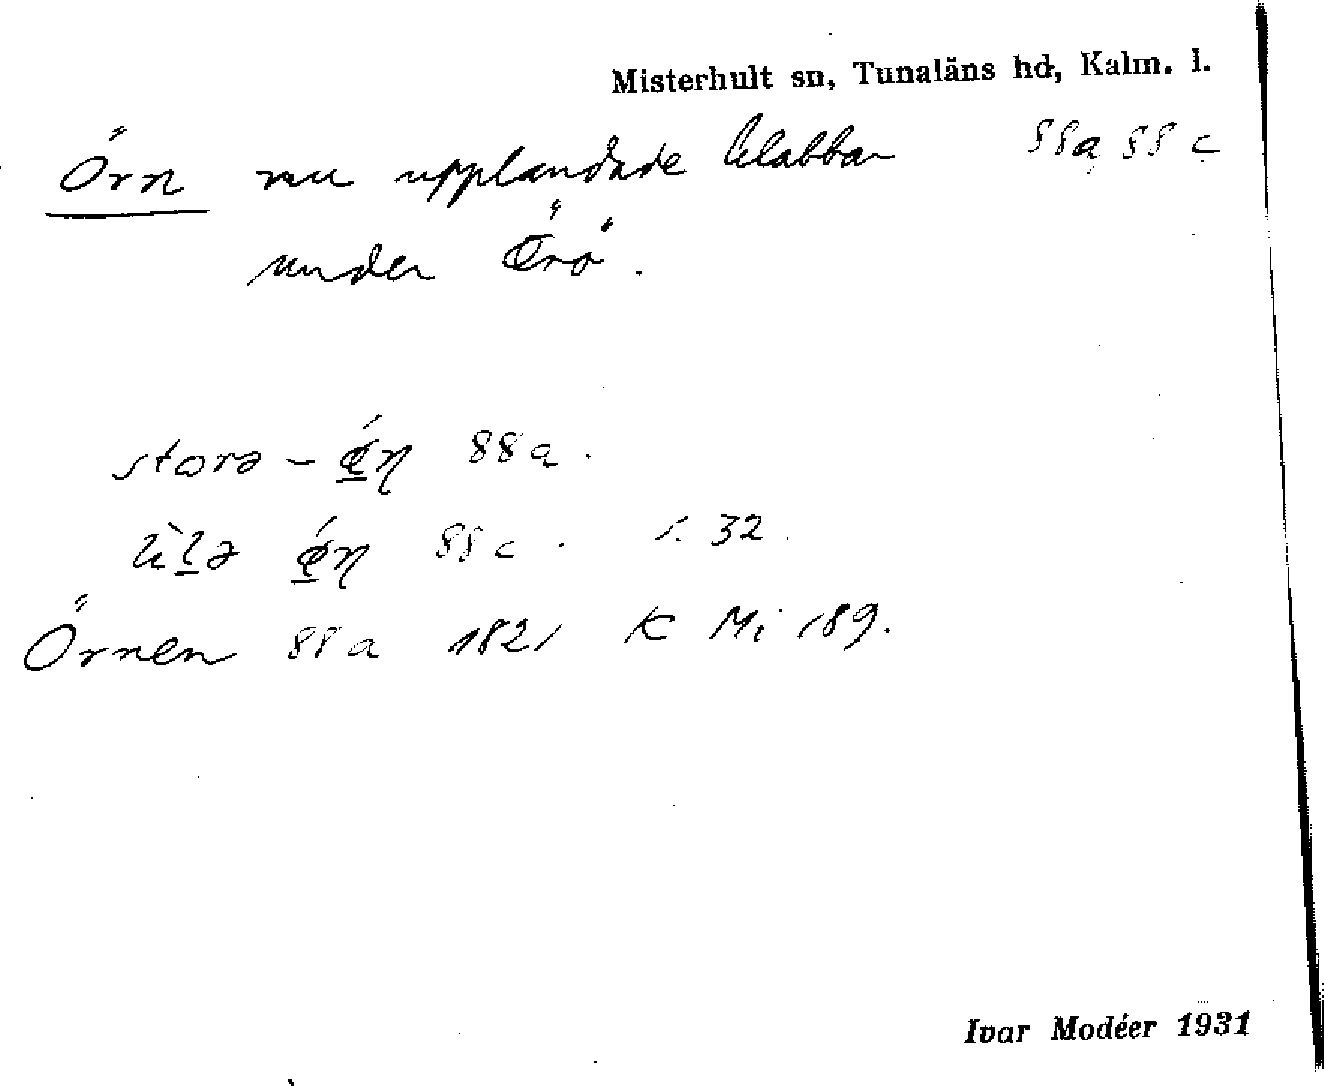 Misterhult sn, Tunaläns hd, Kalm. l.
Örn nu upplandade klabbar 88a, 88c
under Örö.
storə - ǿ̱ɳ 88a.
lìḻə ǿ̱ɳ 88c. s. 32.
Örnen 88a 1821 K Mi 189.
Ivar Modéer 1931